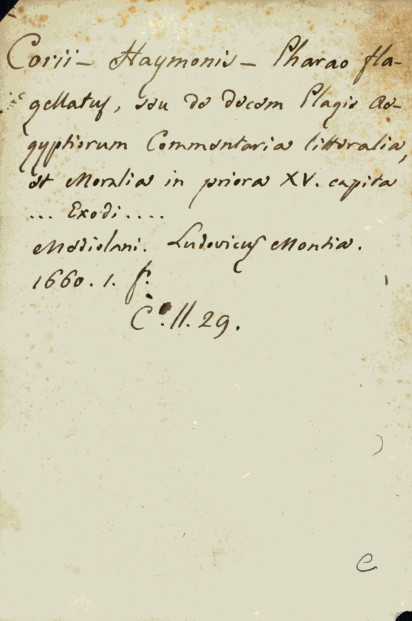 Corii - Haymonis - Pharao fla-
gellatus, seu de decem Plagis Ae-
gyptiorum Commentaria litteralia,
et Moralia in priora XV. capita
... Exodi ....
Mediolani. Ludovicus Montia.
1660. 1. f.
C. II. 29.
C